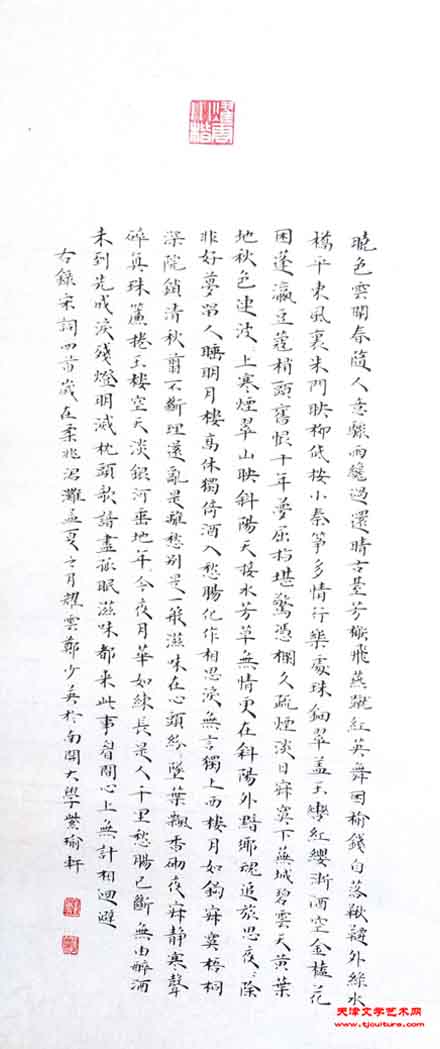 曉色雲開春隨人意驟雨纔過還晴古臺芳榭飛燕蹴紅英舞困榆錢自落鞦韆外綠水
橋平東風裏朱門映柳低按小秦箏多情行樂處珠鈿翠蓋玉轡紅纓漸酒空金榼花
困蓬瀛豆蔻梢頭舊恨十年夢屈指堪驚憑欄久疏煙淡日寂寞下蕪城碧雲天黃葉
地秋色連波、上寒煙翠山映斜陽天接水芳草無情更在斜陽外黯鄉魂追旅思夜、除
非好夢留人睡明月樓高休獨倚酒入愁腸化作相思淚無言獨上西樓月如鈎寂寞梧桐
深院鎖清秋剪不斷理還亂是離愁別是一般滋味在心頭紛、墜葉飄香砌夜寂靜寒聲
碎真珠簾捲玉樓空天淡銀河垂地年、今夜月華如練長是人千里愁腸已斷無由醉酒
未到先成淚殘燈明滅枕頭欹諳盡孤眠滋味都來此事眉間心上無計相迴避
右錄宋詞四首歲在柔兆涒灘孟夏之月耀雲鄭少英於南開大學紫瑜軒
天津文学艺术网
www.tjculture.com